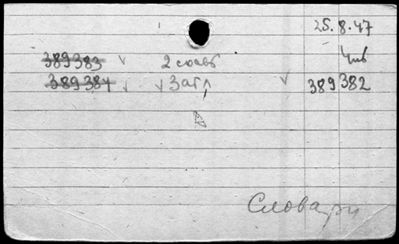 25.8.47
389383 ✓ 2 соавт
389384 ✓ ✓ Загл ✓ 389382
Словари